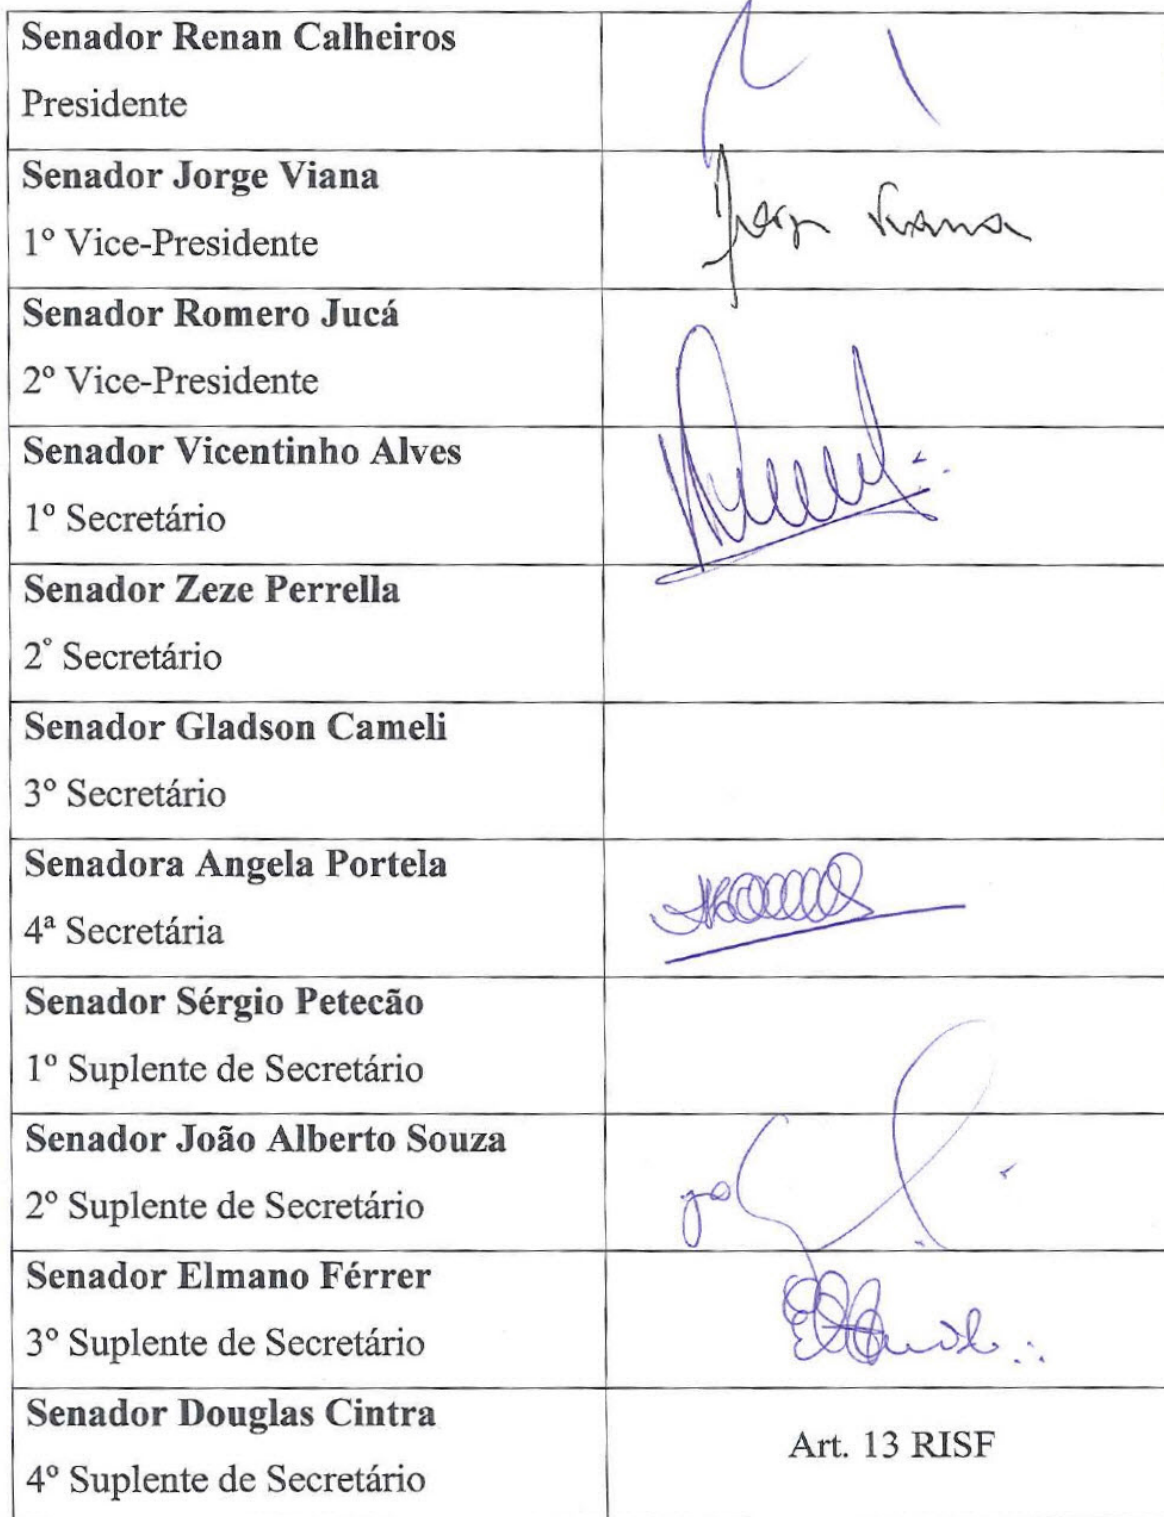 Senador Renan Calheiros
Presidente
Senador Jorge Viana
Jorge Viana
1º Vice-Presidente
Senador Romero Jucá
2º Vice-Presidente
Senador Vicentinho Alves
1º Secretário
Senador Zeze Perrella
2º Secretário
Senador Gladson Cameli
3º Secretário
Senadora Angela Portela
4ª Secretária
Senador Sérgio Petecão
1º Suplente de Secretário
Senador João Alberto Souza
2º Suplente de Secretário
Senador Elmano Férrer
3º Suplente de Secretário
Senador Douglas Cintra
Art. 13 RISF
4º Suplente de Secretário